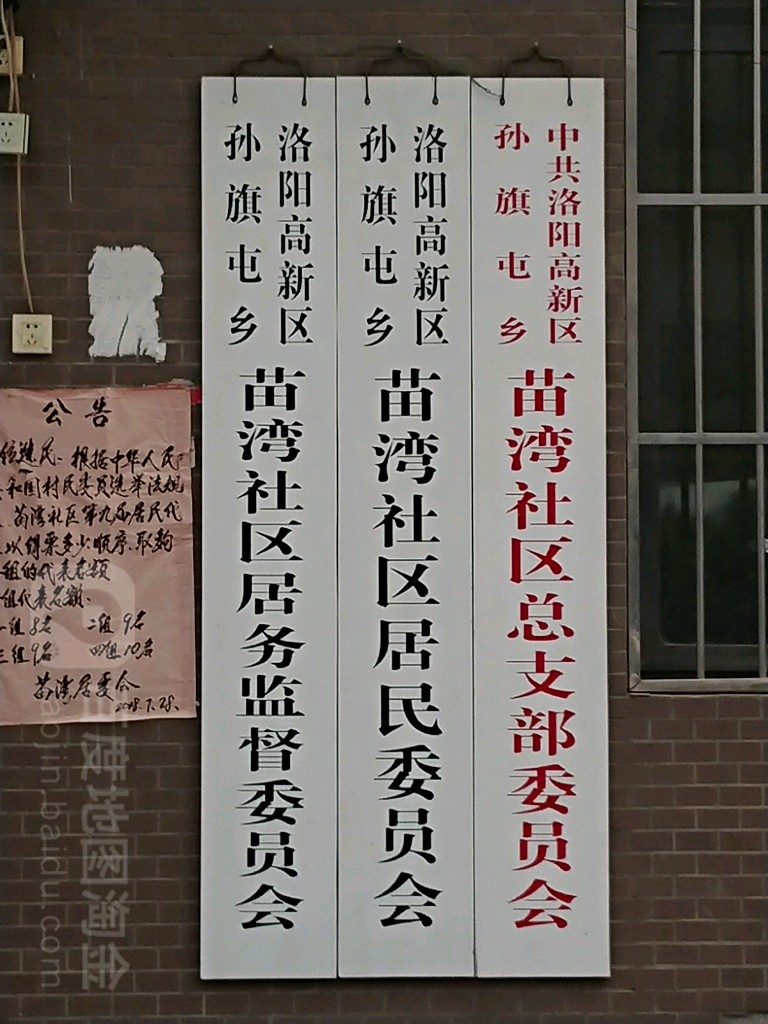 中共洛阳高新区
孙旗屯乡
苗湾社区总支部委员会
洛阳高新区
孙旗屯乡
苗湾社区居民委员会
洛阳高新区
孙旗屯乡
苗湾社区居务监督委员会
公告
选民：根据中华人民
和国村民委员选举法规
苗湾社区第九届居民代
以得票多少顺序.取夠
组的代表名额
组代表名额：
一组8名 二组9名
三组9名 四组10名
苗湾居委会
2018.7.28.
百度地图淘金
taojin.baidu.com